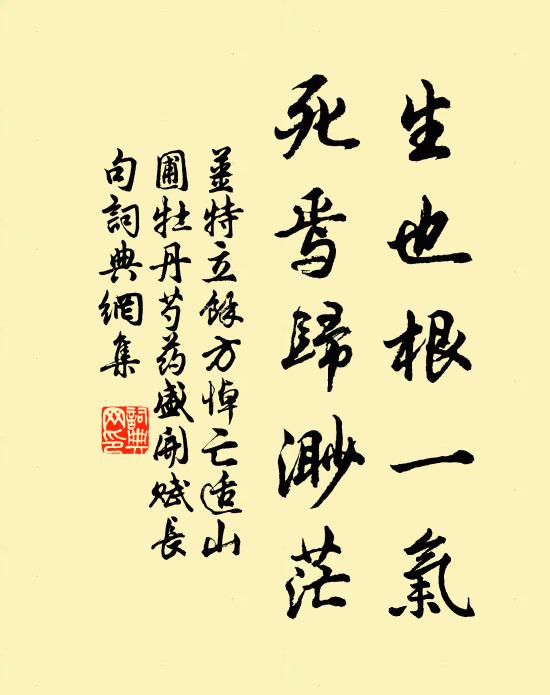 生也根一氣
死焉歸渺茫
薑特立餘方悼亡適山
圃牡丹芍藥盛開賦長
句詞典網集
詞典
网印